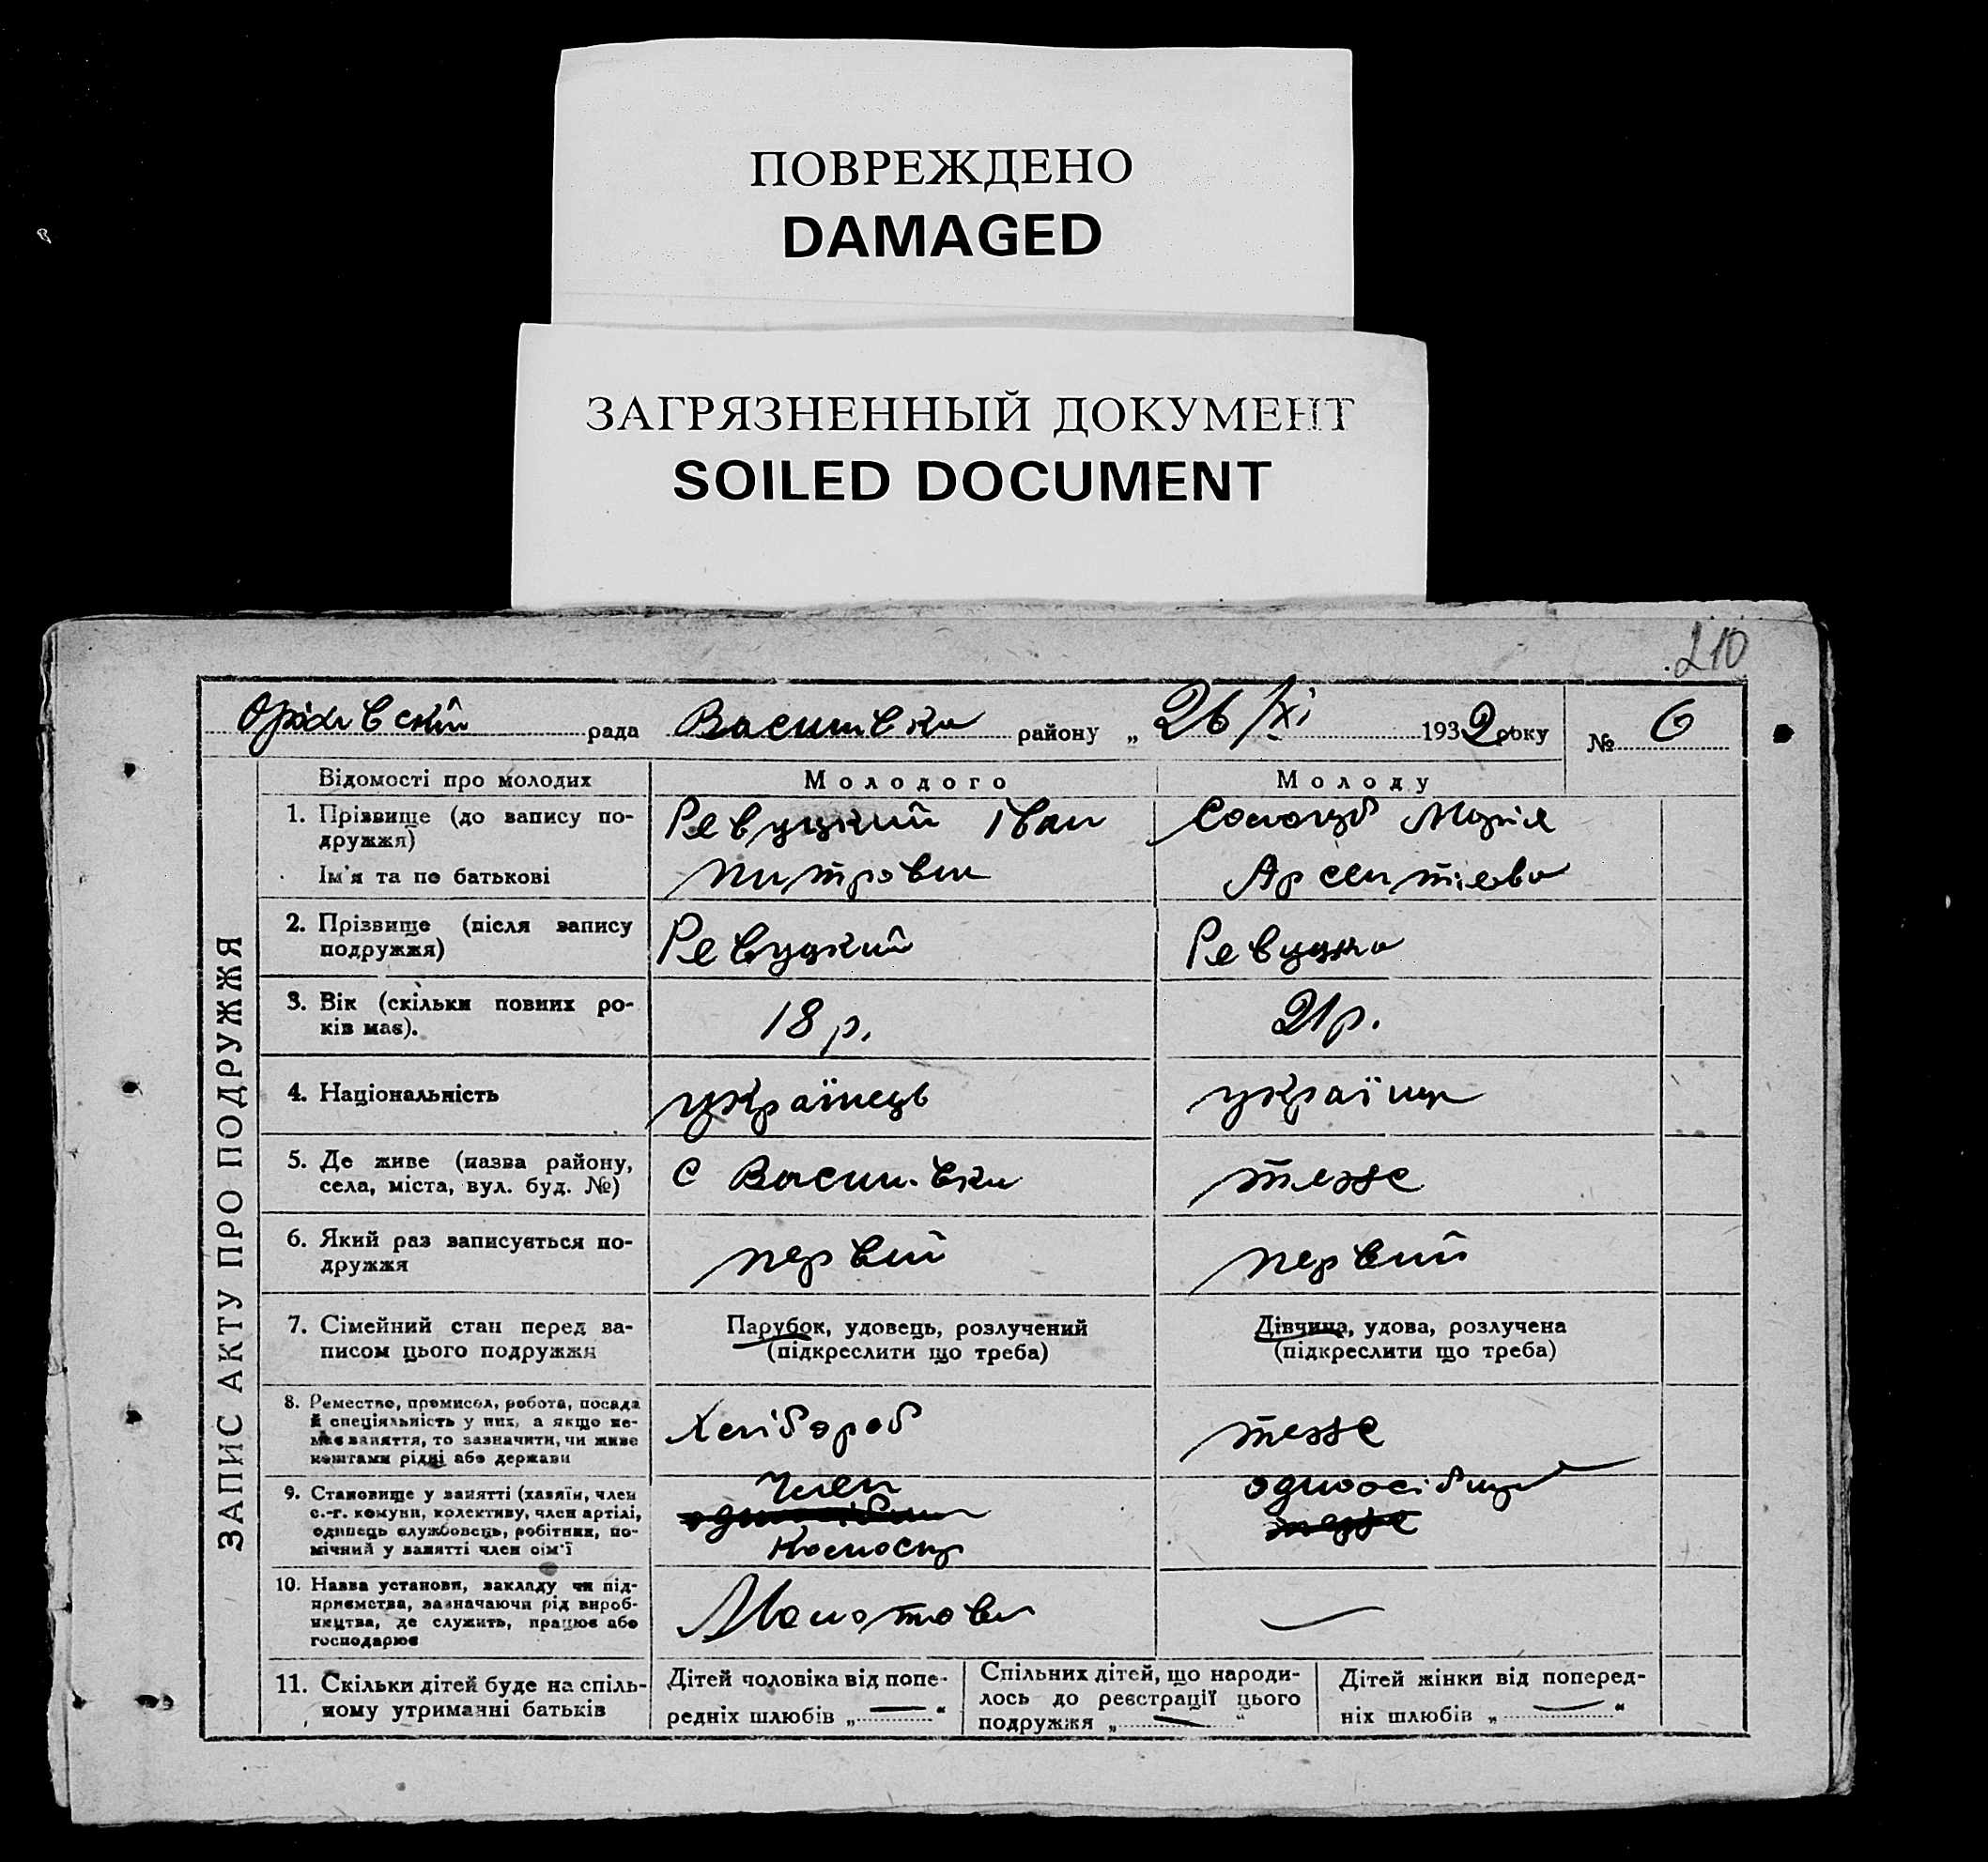 ПОВРЕЖДЕНО
DAMAGED
ЗАГРЯЗНЕННЫЙ ДОКУМЕНТ
SOILED DOCUMENT
210
рада Василівка району „ 26/XI 1932 року № 6
ЗАПИС АКТУ ПРО ПОДРУЖЖЯ
Відомості про молодих Молодого Молоду
1. Прізвище (до запису по-
дружжя)
Ревуцкий Іван Сологуб Марія
Ім'я та по батькові
2. Прізвище (після запису
подружжя)
Ревуцкий Ревуцка
3. Вік (скільки повних ро-
ків має).
18 р. 21 р.
4. Національність українець українц
5. Де живе (назва району,
села, міста, вул. буд. №)
с Василівки теже
6. Який раз записується по-
дружжя
первий первий
7. Сімейний стан перед за-
писом цього подружжя
Парубок, удовець, розлучений
(підкреслити що треба)
Дівчина, удова, розлучена
(підкреслити що треба)
8. Ремество, промисол, робота, посада
й спеціяльність у них, а якщо не-
має заняття, то зазначити, чи живе
коштами рідні або держави
Хлібороб теже
9. Становище у занятті (хазяїн, член
с.-г. комуни, колективу, член артілі,
одинець службовець, робітник, по-
мічний у занятті член сім'ї
член
колгоспу
10. Назва установи, закладу чи під-
приємства, зазначаючи рід вироб-
ництва, де служить, працює або
господарює
Молотова —
11. Скільки дітей буде на спіль-
ному утриманні батьків
Дітей чоловіка від попе-
редніх шлюбів „—“
Спільних дітей, що народи-
лось до реєстрації цього
подружжя „—“
Дітей жінки від поперед-
ніх шлюбів „—“